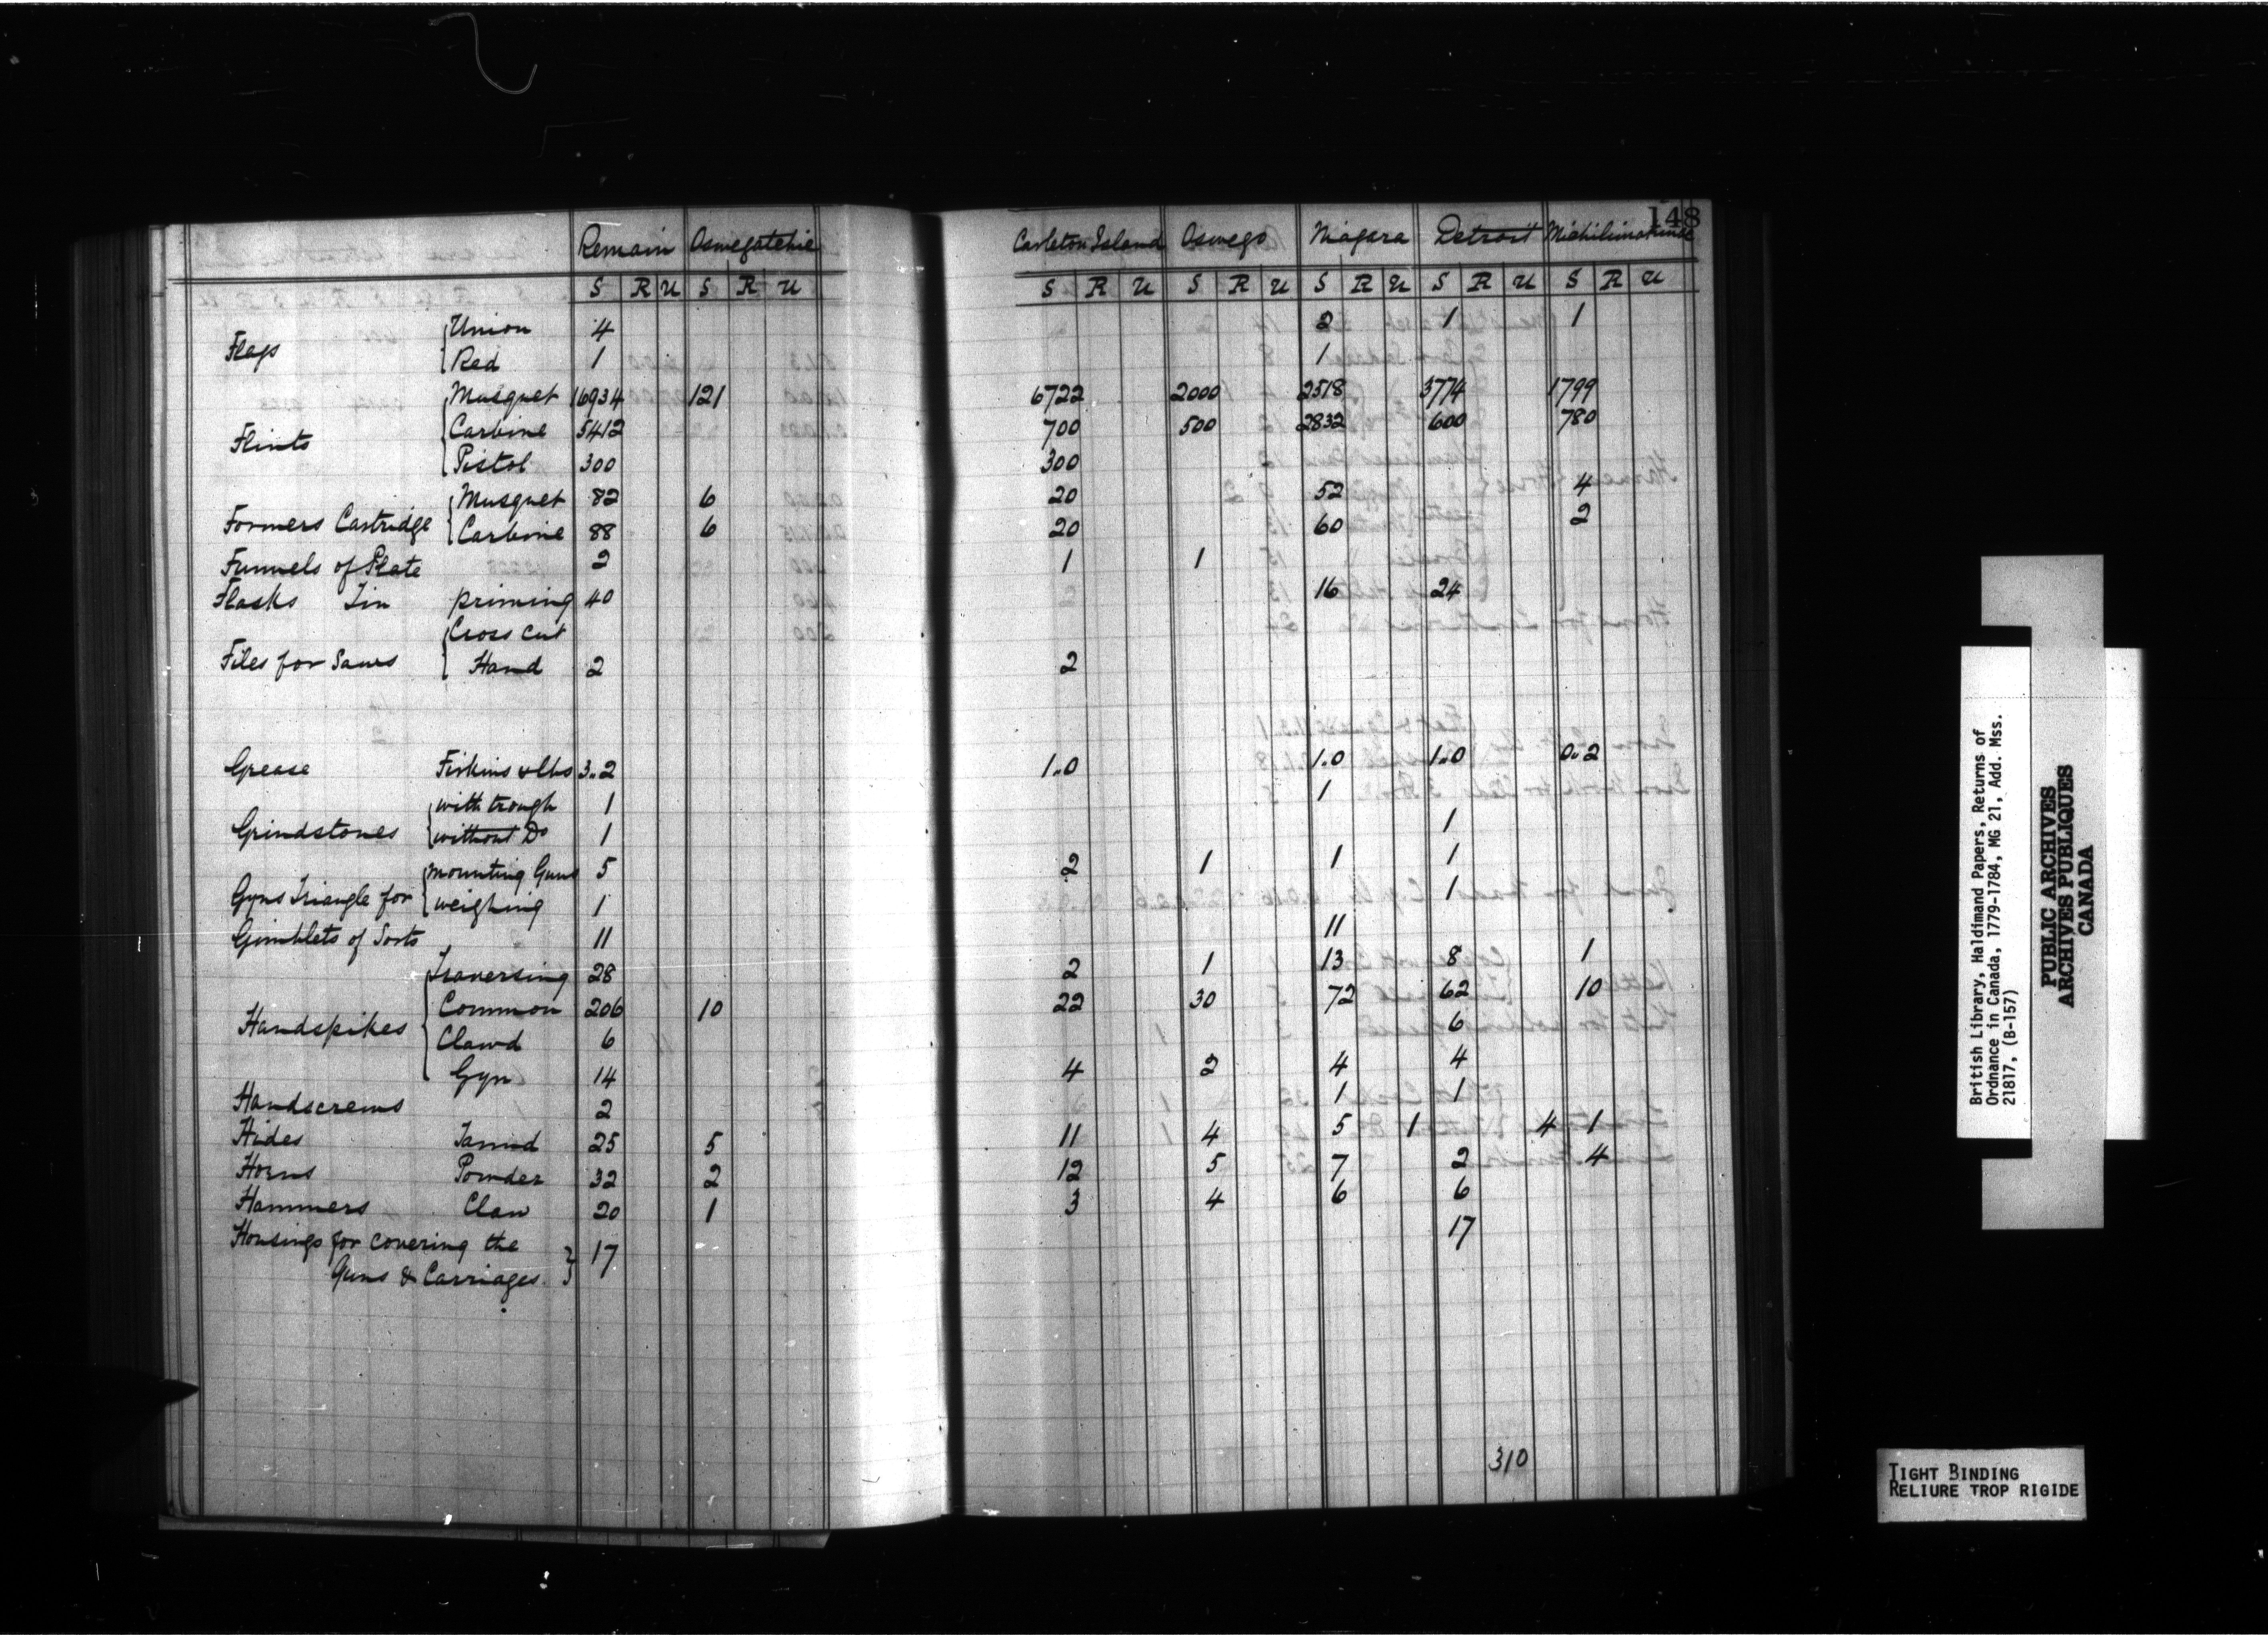 148
Remain Oswegatchie Carleton Island Oswego Niagara Detroit Michilimakinac
S R U S R U S R U S R U S R U S R U S R U
Flags { Union 4 2 1 1
{ Red 1 1
Flints { Musquet 16934 121 6722 2000 2518 3774 1799
{ Carbine 5412 700 500 2832 600 780
{ Pistol 300 300
Formers Cartridge { Musquet 82 6 20 52 4
{ Carbine 88 6 20 60 2
Funnels of Plate 2 1 1
Flasks Tin priming 40 16 24
Files for Saws { Cross cut
{ Hand 2 2
Grease Firkins & lbs 3..2 1..0 1..0 1..0 0..2
Grindstones { with trough 1 1
{ without Do 1 1
Gyns Triangle for { mounting Guns 5 2 1 1 1
{ weighing 1 1
Gimblets of Sorts 11 11
Handspikes { Traversing 28 2 1 13 8 1
Common 206 10 22 30 72 62 10
Clawd 6 6
Gyn 14 4 2 4 4
Handscrews 2 1 1
Hides Tannd 25 5 11 4 5 1 4 1
Horns Powder 32 2 12 5 7 2 4
Hammers Claw 20 1 3 4 6 6
Housings for covering the
Guns & Carriages } 17 17
310
British Library, Haldimand Papers, Returns of
Ordnance in Canada, 1779-1784, MG 21, Add. Mss.
21817, (B-157)
PUBLIC ARCHIVES
ARCHIVES PUBLIQUES
CANADA
TIGHT BINDING
RELIURE TROP RIGIDE